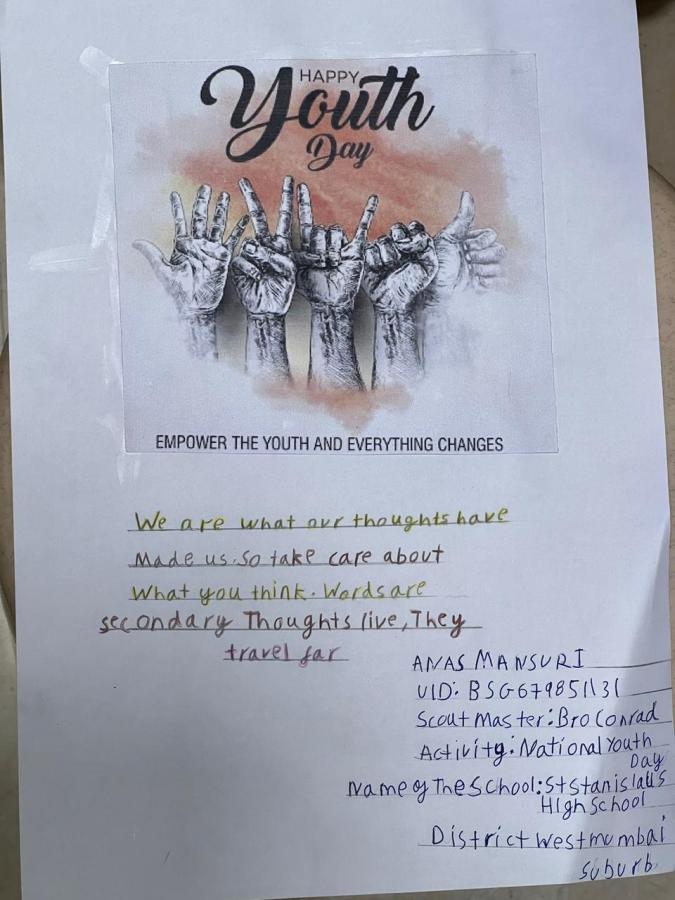 HAPPY
Youth
Day
EMPOWER THE YOUTH AND EVERYTHING CHANGES
We are what our thoughts have
Made us. So take care about
What you think. Words are
secondary Thoughts live, They
travel far
ANAS MANSURI
UID: BSG679851131
Scout Master: Bro Conrad
Activity: National Youth
Day
Name of The School: St Stanislaus
High School
District west mumbai
suburb.